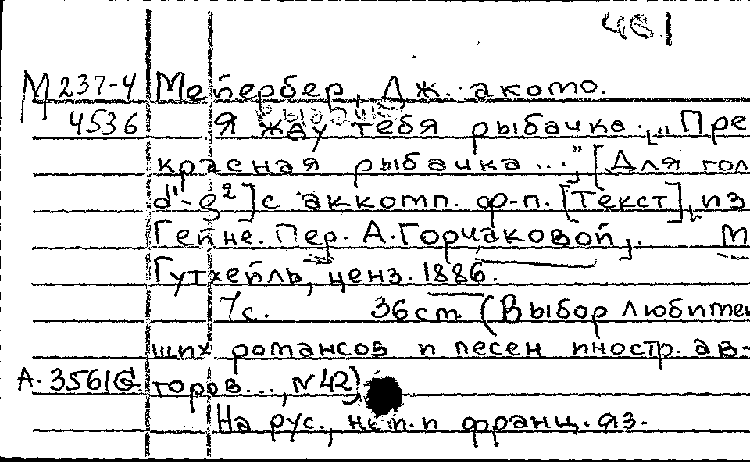 48.1
М 237-4 Мейербер, Дж. акомп.
4536 Я жду тебя рыбачка. „Пре
красная рыбачка..." [Для гол
d'-g²] с аккомп. ф-п. [Текст] из
Гейне. Пер. А. Горчаковой. М
Гутхейль, ценз. 1886.
7с. 36cm (Выбор любител
ших романсов и песен иностр. ав-
А.3561G торов..., №42)
На рус., нем. и франц. яз.